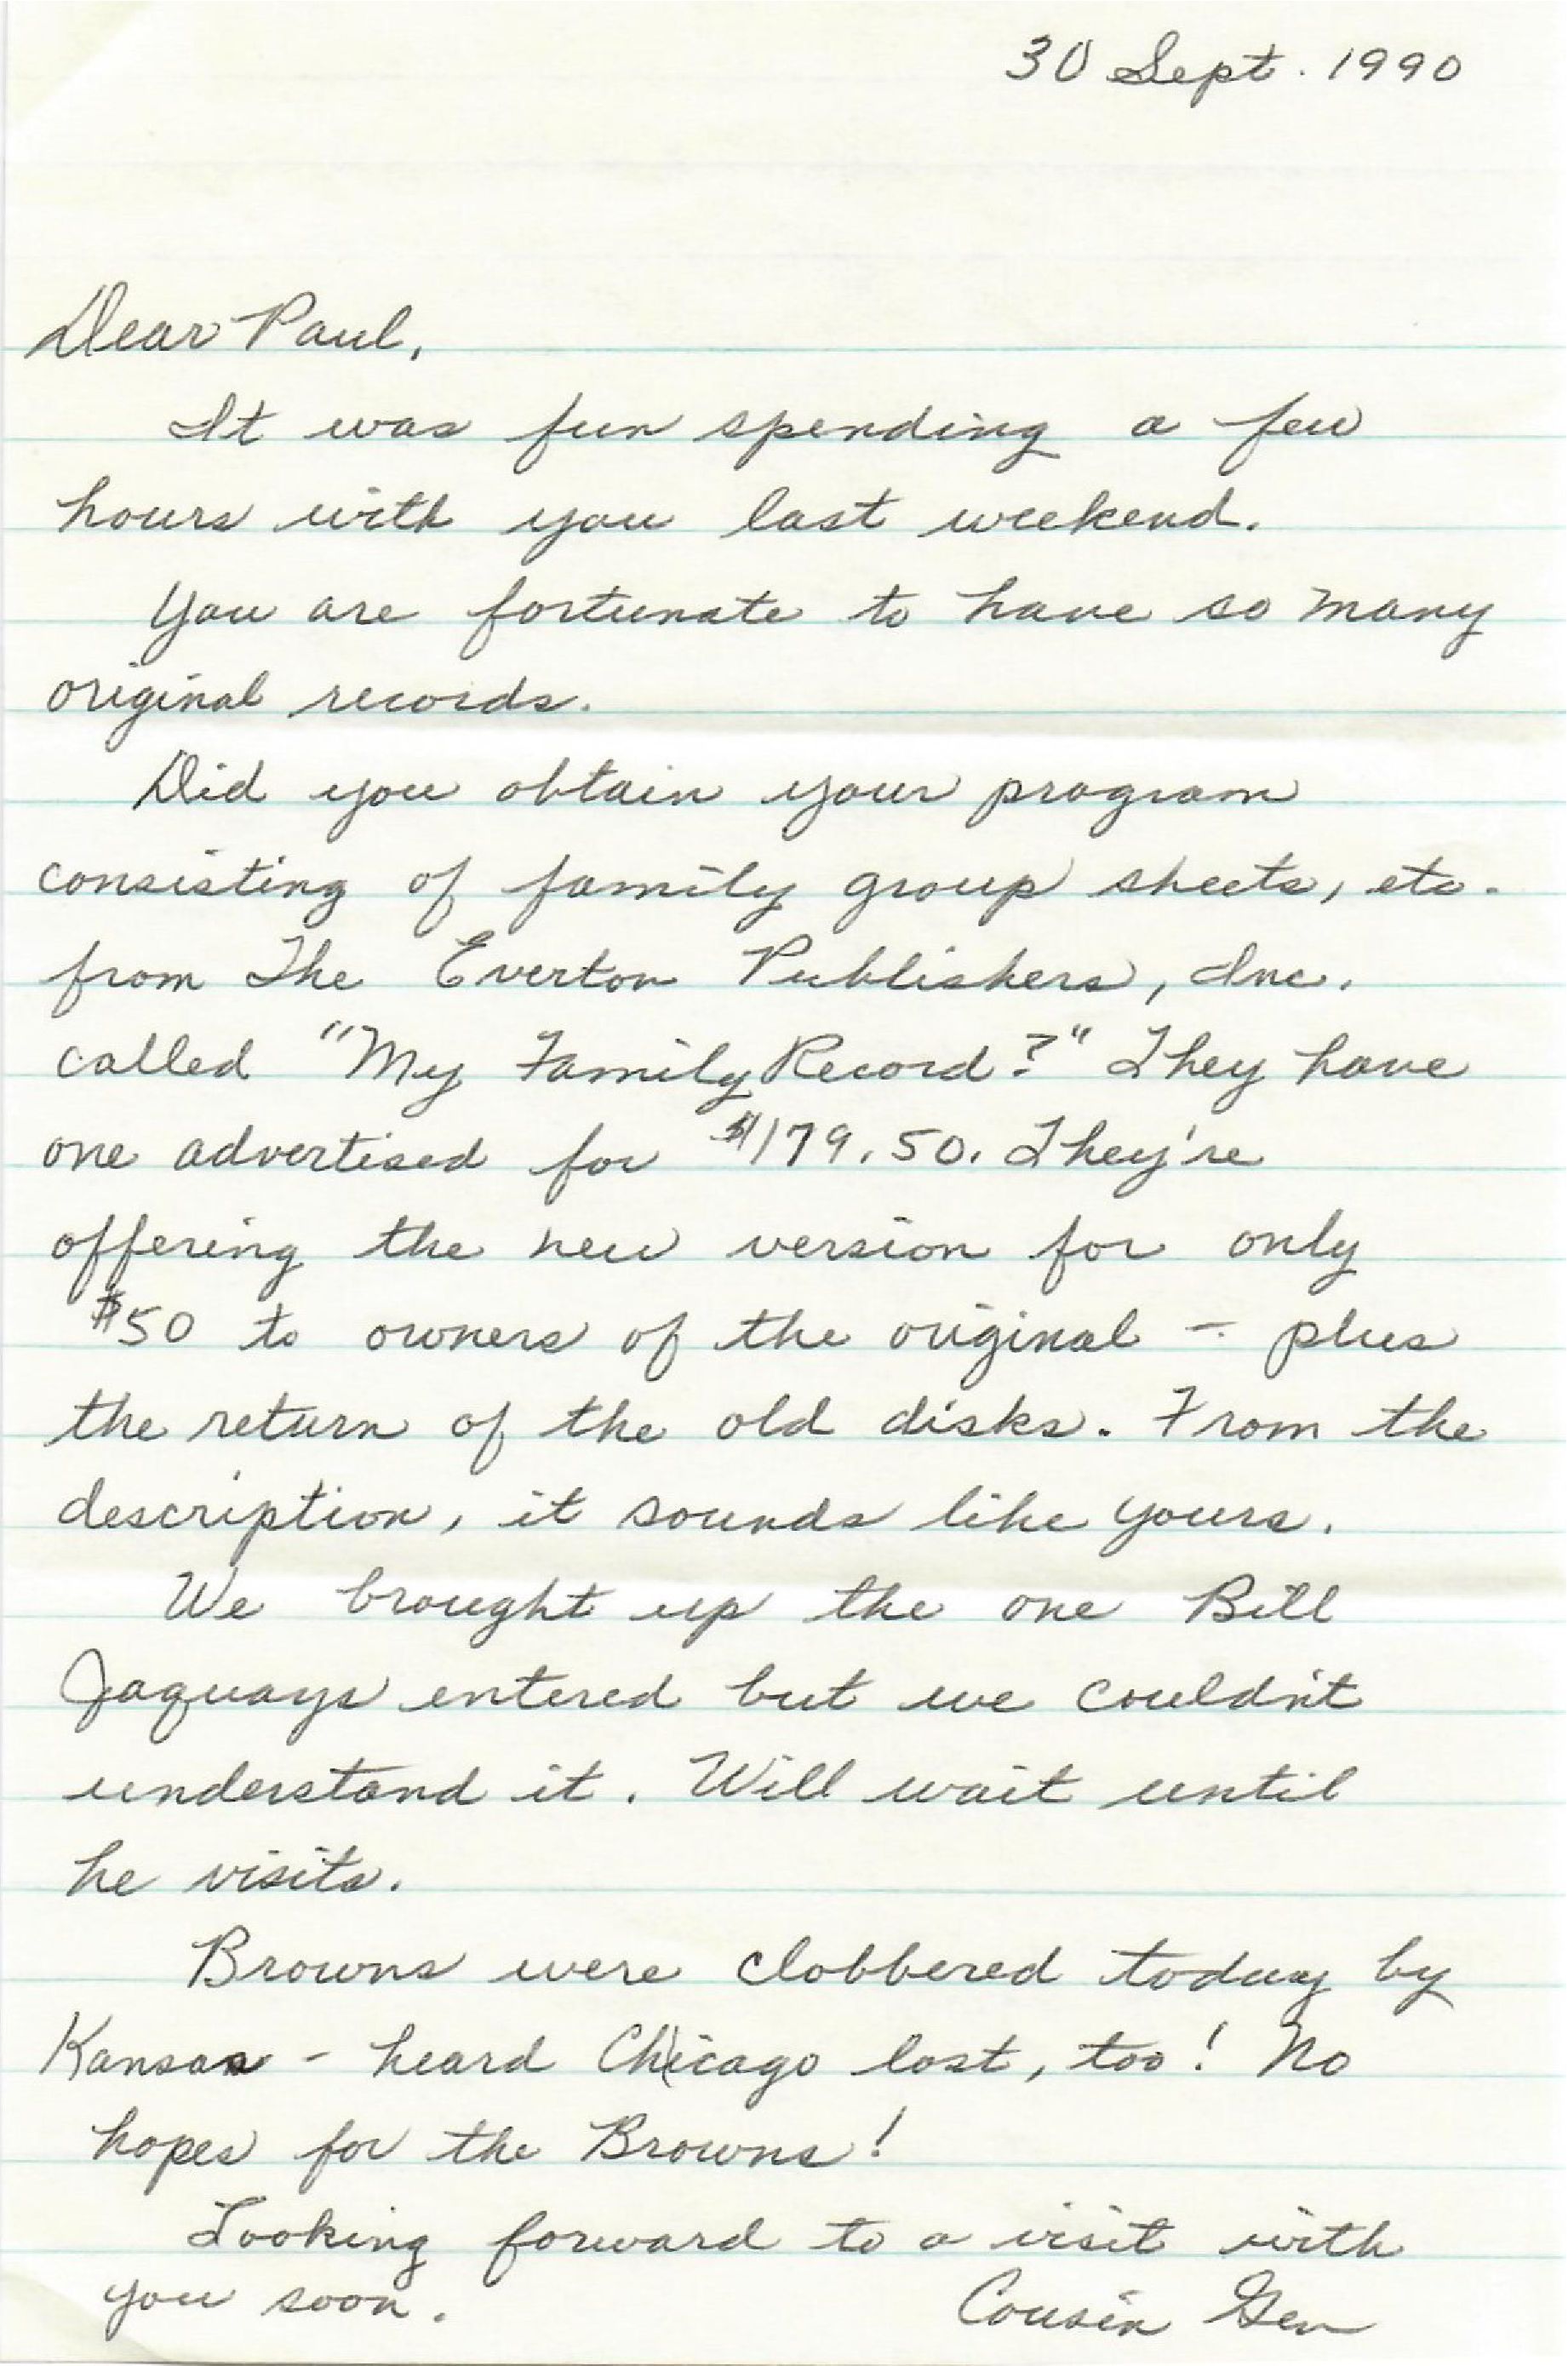 30 Sept. 1990
Dear Paul,
It was fun spending a few
hours with you last weekend.
You are fortunate to have so many
original records.
Did you obtain your program
consisting of family group sheets, etc.
from The Everton Publishers, Inc.
called "My Family Record?" They have
one advertised for $179.50. They're
offering the new version for only
$50 to owners of the original - plus
the return of the old disks. From the
description, it sounds like yours.
We brought up the one Bill
Jaquays entered but we couldn't
understand it. Will wait until
he visits.
Browns were clobbered today by
Kansas - heard Chicago lost, too! No
hopes for the Browns!
Looking forward to a visit with
you soon.
Cousin Gen